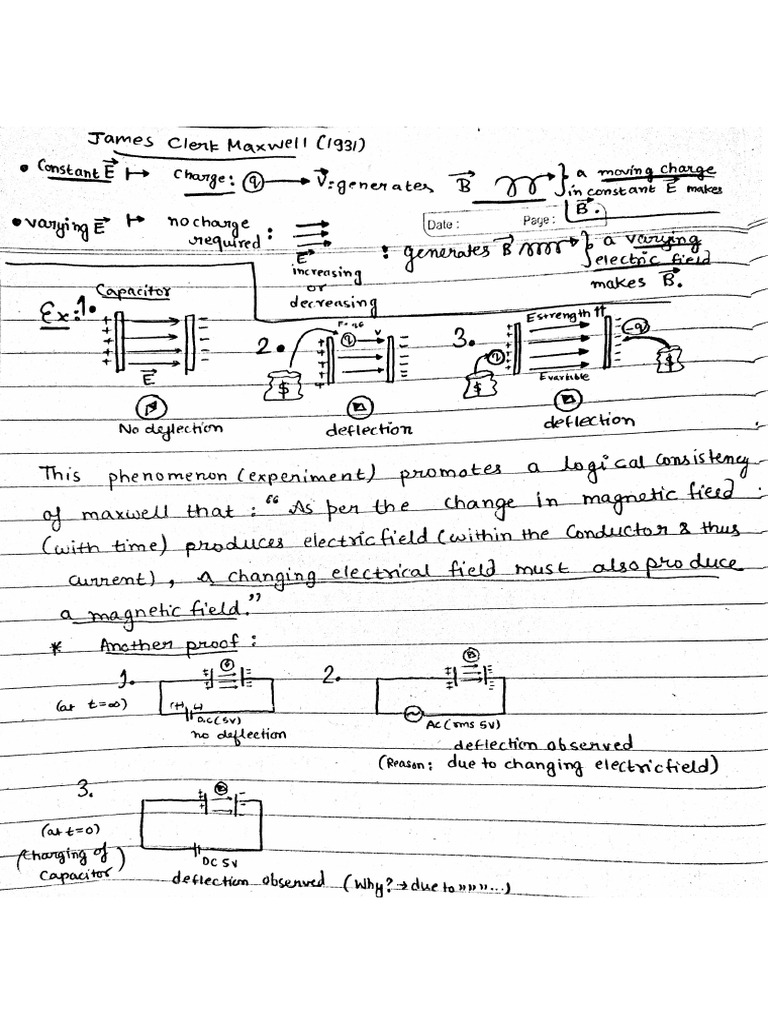 James Clerk Maxwell (1931)
• Constant E → charge: q → V: generates B } a moving charge in constant E makes B.
Date : Page :
• varying E → no charge required : E increasing or decreasing : generates B } a varying electric field makes B.
Ex: 1. Capacitor
+ + + + E − − − −
No deflection
2. q V $
deflection
3. Estrength ⇈ q −q E variable $ $
deflection
This phenomenon (experiment) promotes a logical consistency
of maxwell that : "As per the change in magnetic field
(with time) produces electric field (within the conductor & thus
current), a changing electrical field must also produce
a magnetic field."
* Another proof :
1. (at t=∞) (+) (-) DC(5V)
no deflection
2. AC (rms 5V)
deflection observed
(Reason: due to changing electric field)
3. (at t=0)
(Charging of Capacitor)
DC 5V
deflection observed (Why? → due to """...)